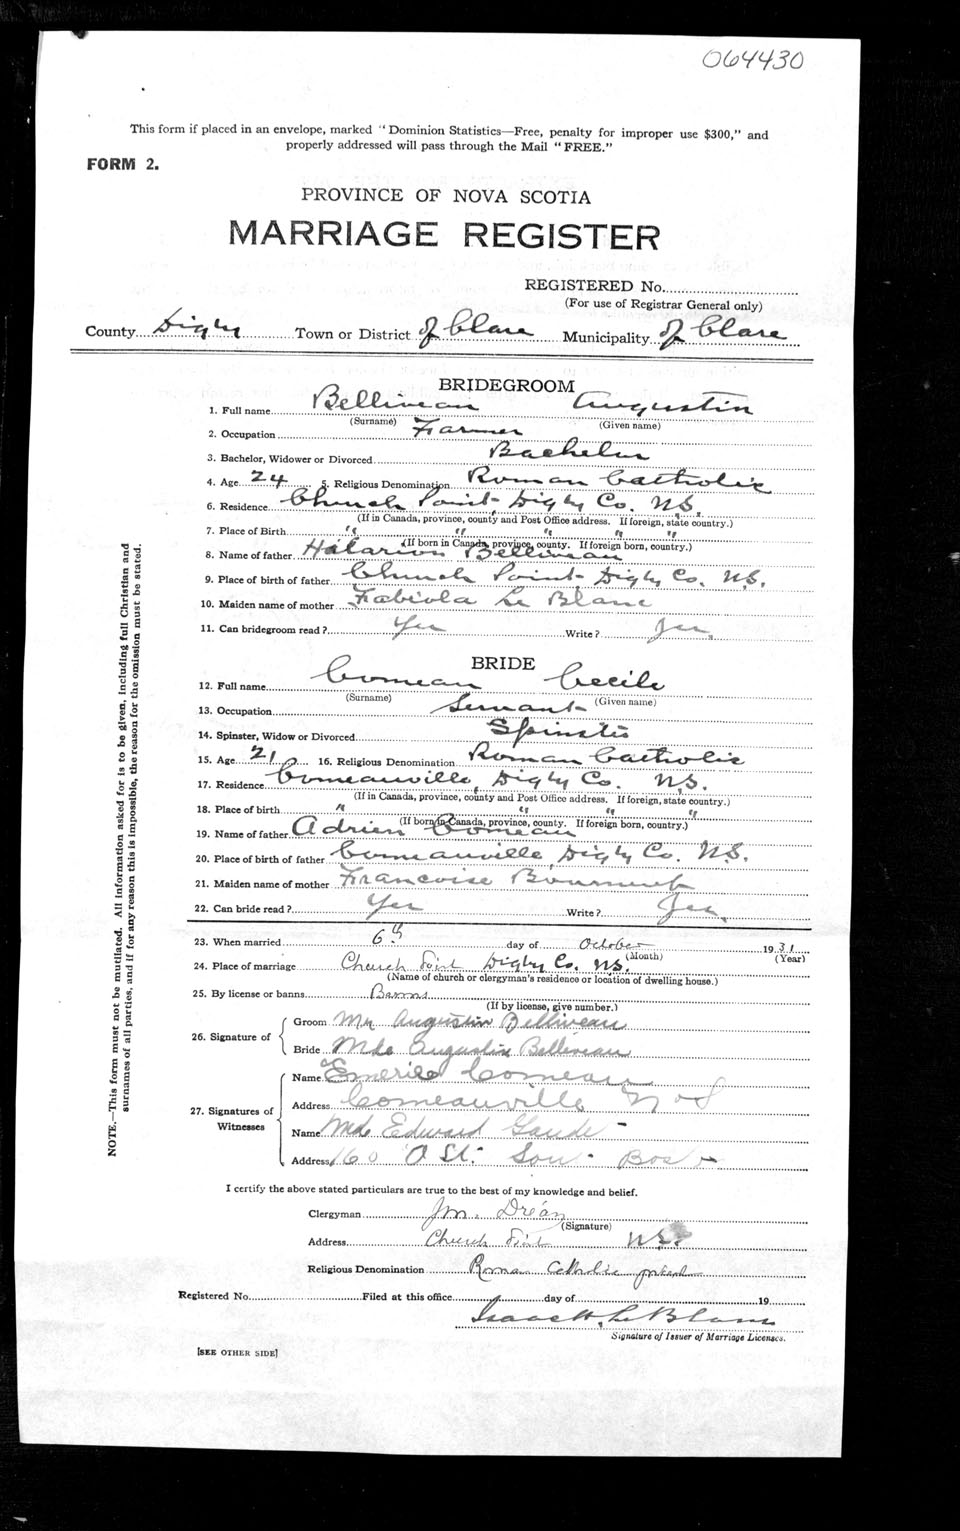 064430
This form if placed in an envelope, marked "Dominion Statistics—Free, penalty for improper use $300," and
properly addressed will pass through the Mail "FREE."
FORM 2.
PROVINCE OF NOVA SCOTIA
MARRIAGE REGISTER
REGISTERED No.
(For use of Registrar General only)
County Digby Town or District of Clare Municipality of Clare
BRIDEGROOM
1. Full name Belliveau Augustin
(Surname) (Given name)
2. Occupation Farmer
3. Bachelor, Widower or Divorced Bachelor
4. Age 24 5. Religious Denomination Roman Catholic
6. Residence Church Point Digby Co. N.S.
(If in Canada, province, county and Post Office address. If foreign, state country.)
7. Place of Birth " " " " "
(If born in Canada, province, county. If foreign born, country.)
8. Name of father Hilarion Belliveau
9. Place of birth of father Church Point Digby Co. N.S.
10. Maiden name of mother Fabiola Le Blanc
11. Can bridegroom read? Yes Write? Yes
BRIDE
12. Full name Comeau Cecile
(Surname) (Given name)
13. Occupation Servant
14. Spinster, Widow or Divorced Spinster
15. Age 21 16. Religious Denomination Roman Catholic
17. Residence Comeauville, Digby Co. N.S.
(If in Canada, province, county and Post Office address. If foreign, state country.)
18. Place of birth " " " "
(If born in Canada, province, county. If foreign born, country.)
19. Name of father Adrien Comeau
20. Place of birth of father Comeauville, Digby Co. N.S.
21. Maiden name of mother Francoise
22. Can bride read? Yes Write? Yes
23. When married 6th day of October 1931
(Month) (Year)
24. Place of marriage Church Point Digby Co. N.S.
(Name of church or clergyman's residence or location of dwelling house.)
25. By license or banns Banns
(If by license, give number.)
26. Signature of
Groom Mr Augustin Belliveau
Bride Mde Augustin Belliveau
27. Signatures of Witnesses
Name Comeau
Address Comeauville N S
Name Mde Edward
Address 160 O St. Sou Bos
I certify the above stated particulars are true to the best of my knowledge and belief.
Clergyman
(Signature)
Address Church Point N.S.
Religious Denomination Roman Catholic
Registered No. Filed at this office day of 19
Isaac H. Le Blanc
Signature of Issuer of Marriage Licenses.
[SEE OTHER SIDE]
NOTE.—This form must not be mutilated. All information asked for is to be given, including full Christian and
surnames of all parties, and if for any reason this is impossible, the reason for the omission must be stated.